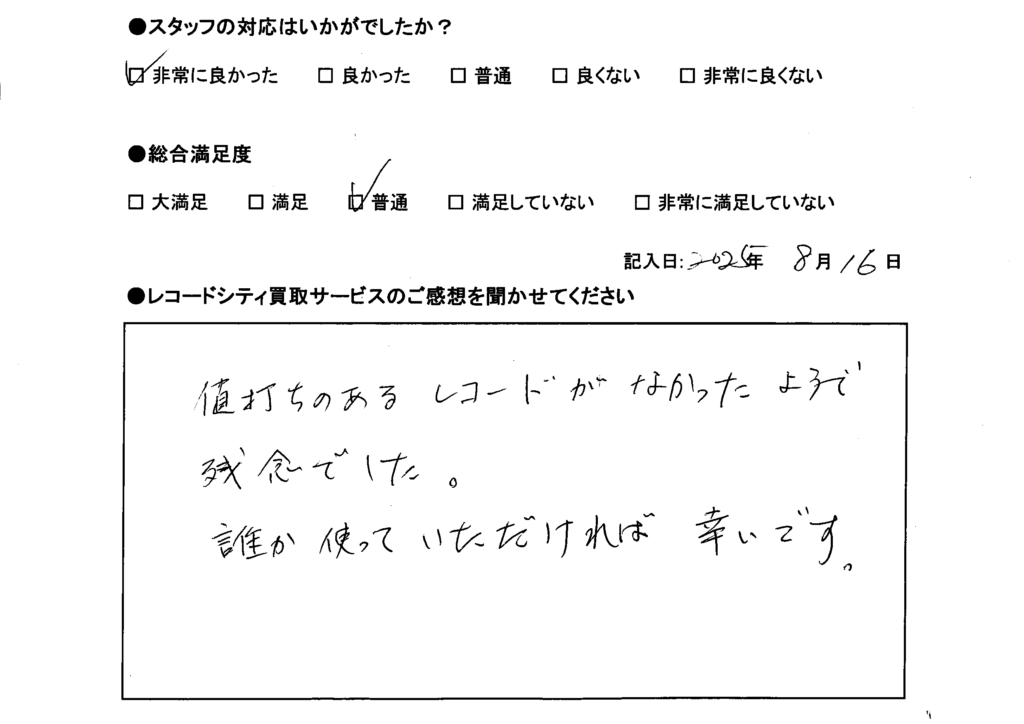 ●スタッフの対応はいかがでしたか？
☑ 非常に良かった □ 良かった □ 普通 □ 良くない □ 非常に良くない
●総合満足度
□ 大満足 □ 満足 ☑ 普通 □ 満足していない □ 非常に満足していない
記入日:2025年 8月16日
●レコードシティ買取サービスのご感想を聞かせてください
値打ちのある レコードが なかった ようで
残念でした。
誰か 使って いただければ 幸いです。